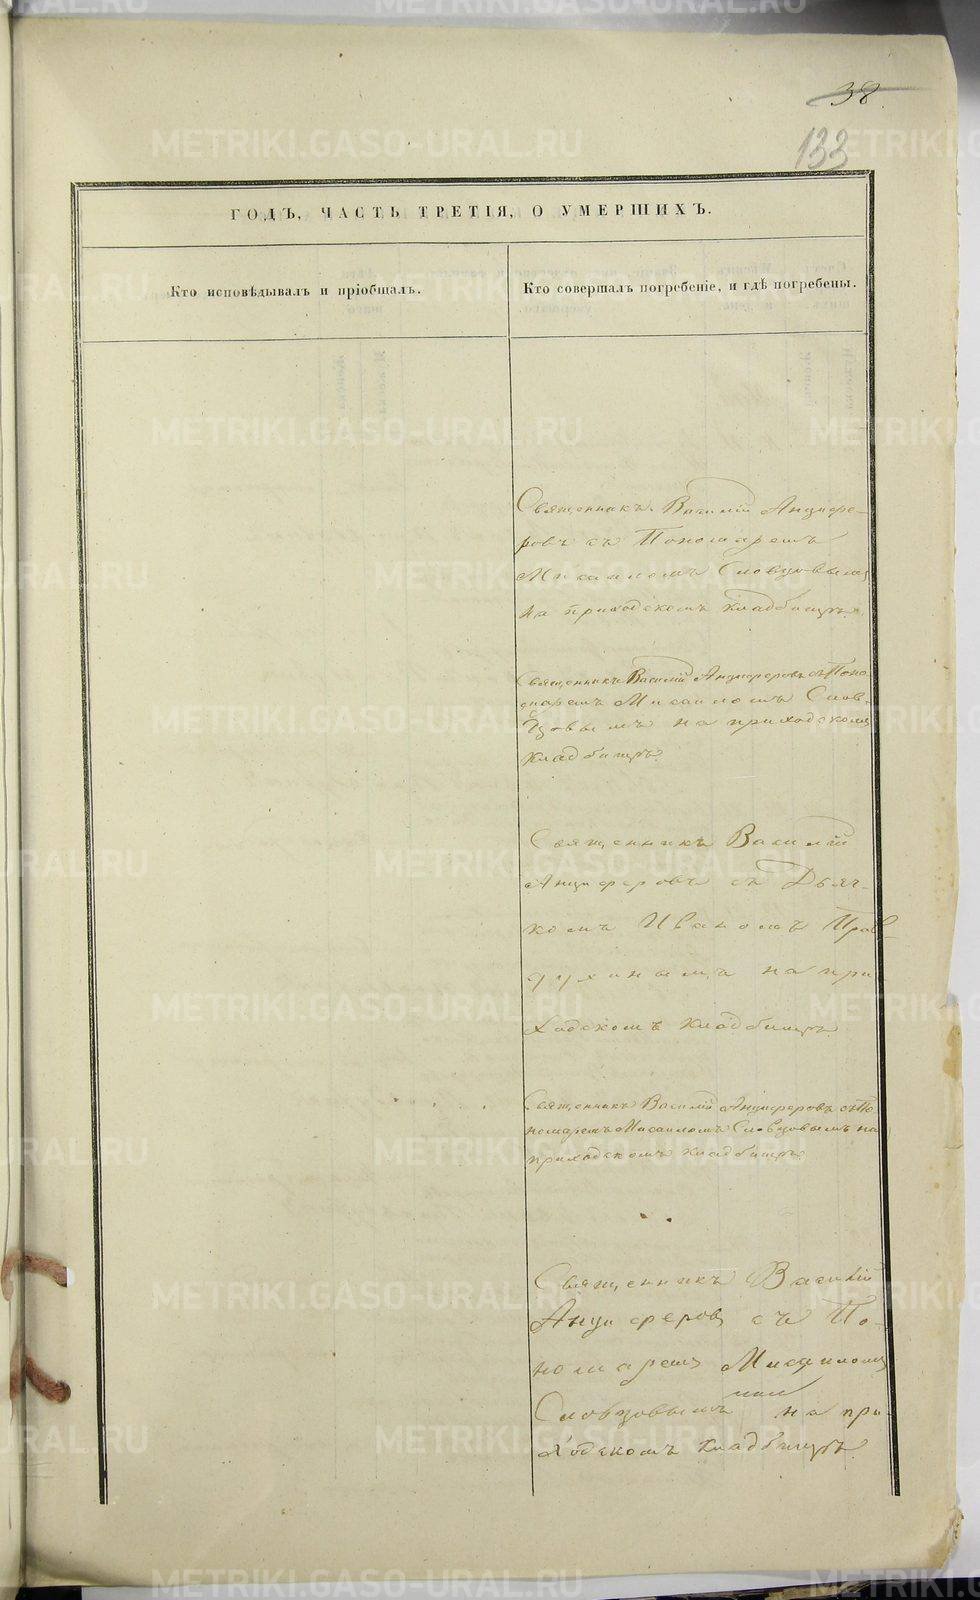 38
133
ГОДЪ, ЧАСТЬ ТРЕТІЯ, О УМЕРШИХЪ.
Кто исповѣдывалъ и пріобщалъ.
Кто совершалъ погребеніе, и гдѣ погребены.
Священникъ Василій Анцифе-
ровъ съ Пономаремъ
Мисаиломъ Словцовымъ
на приходскомъ кладбищѣ.
Священникъ Василій Анциферовъ съ Поно
маремъ Мисаиломъ Слов-
цовымъ на приходскомъ
кладбищѣ
Священникъ Василій
Анциферовъ съ Дьяч-
комъ Иваномъ
на при
ходскомъ кладбищѣ
Священникъ Василій Анциферовъ съ По
номаремъ Мисаиломъ Словцовымъ на
приходскомъ кладбищѣ.
Священникъ Василій
Анциферовъ съ По-
номаремъ Мисаиломъ
Словцовымъ на при-
ходскомъ кладбищѣ.
METRIKI.GASO-URAL.RU